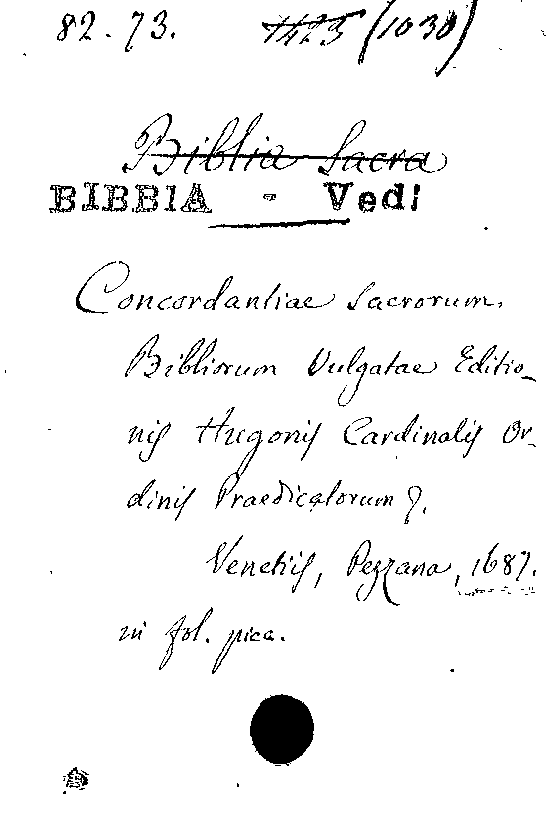 82.73. 1423 (1030)
Biblia Sacra
BIBBIA - Vedi
Concordantiae Sacrorum
Bibliorum Vulgatae Editio-
nis Hugonis Cardinalis Or-
dinis Praedicatorum &.
Venetiis, Pezzana, 1687.
in fol. picc.